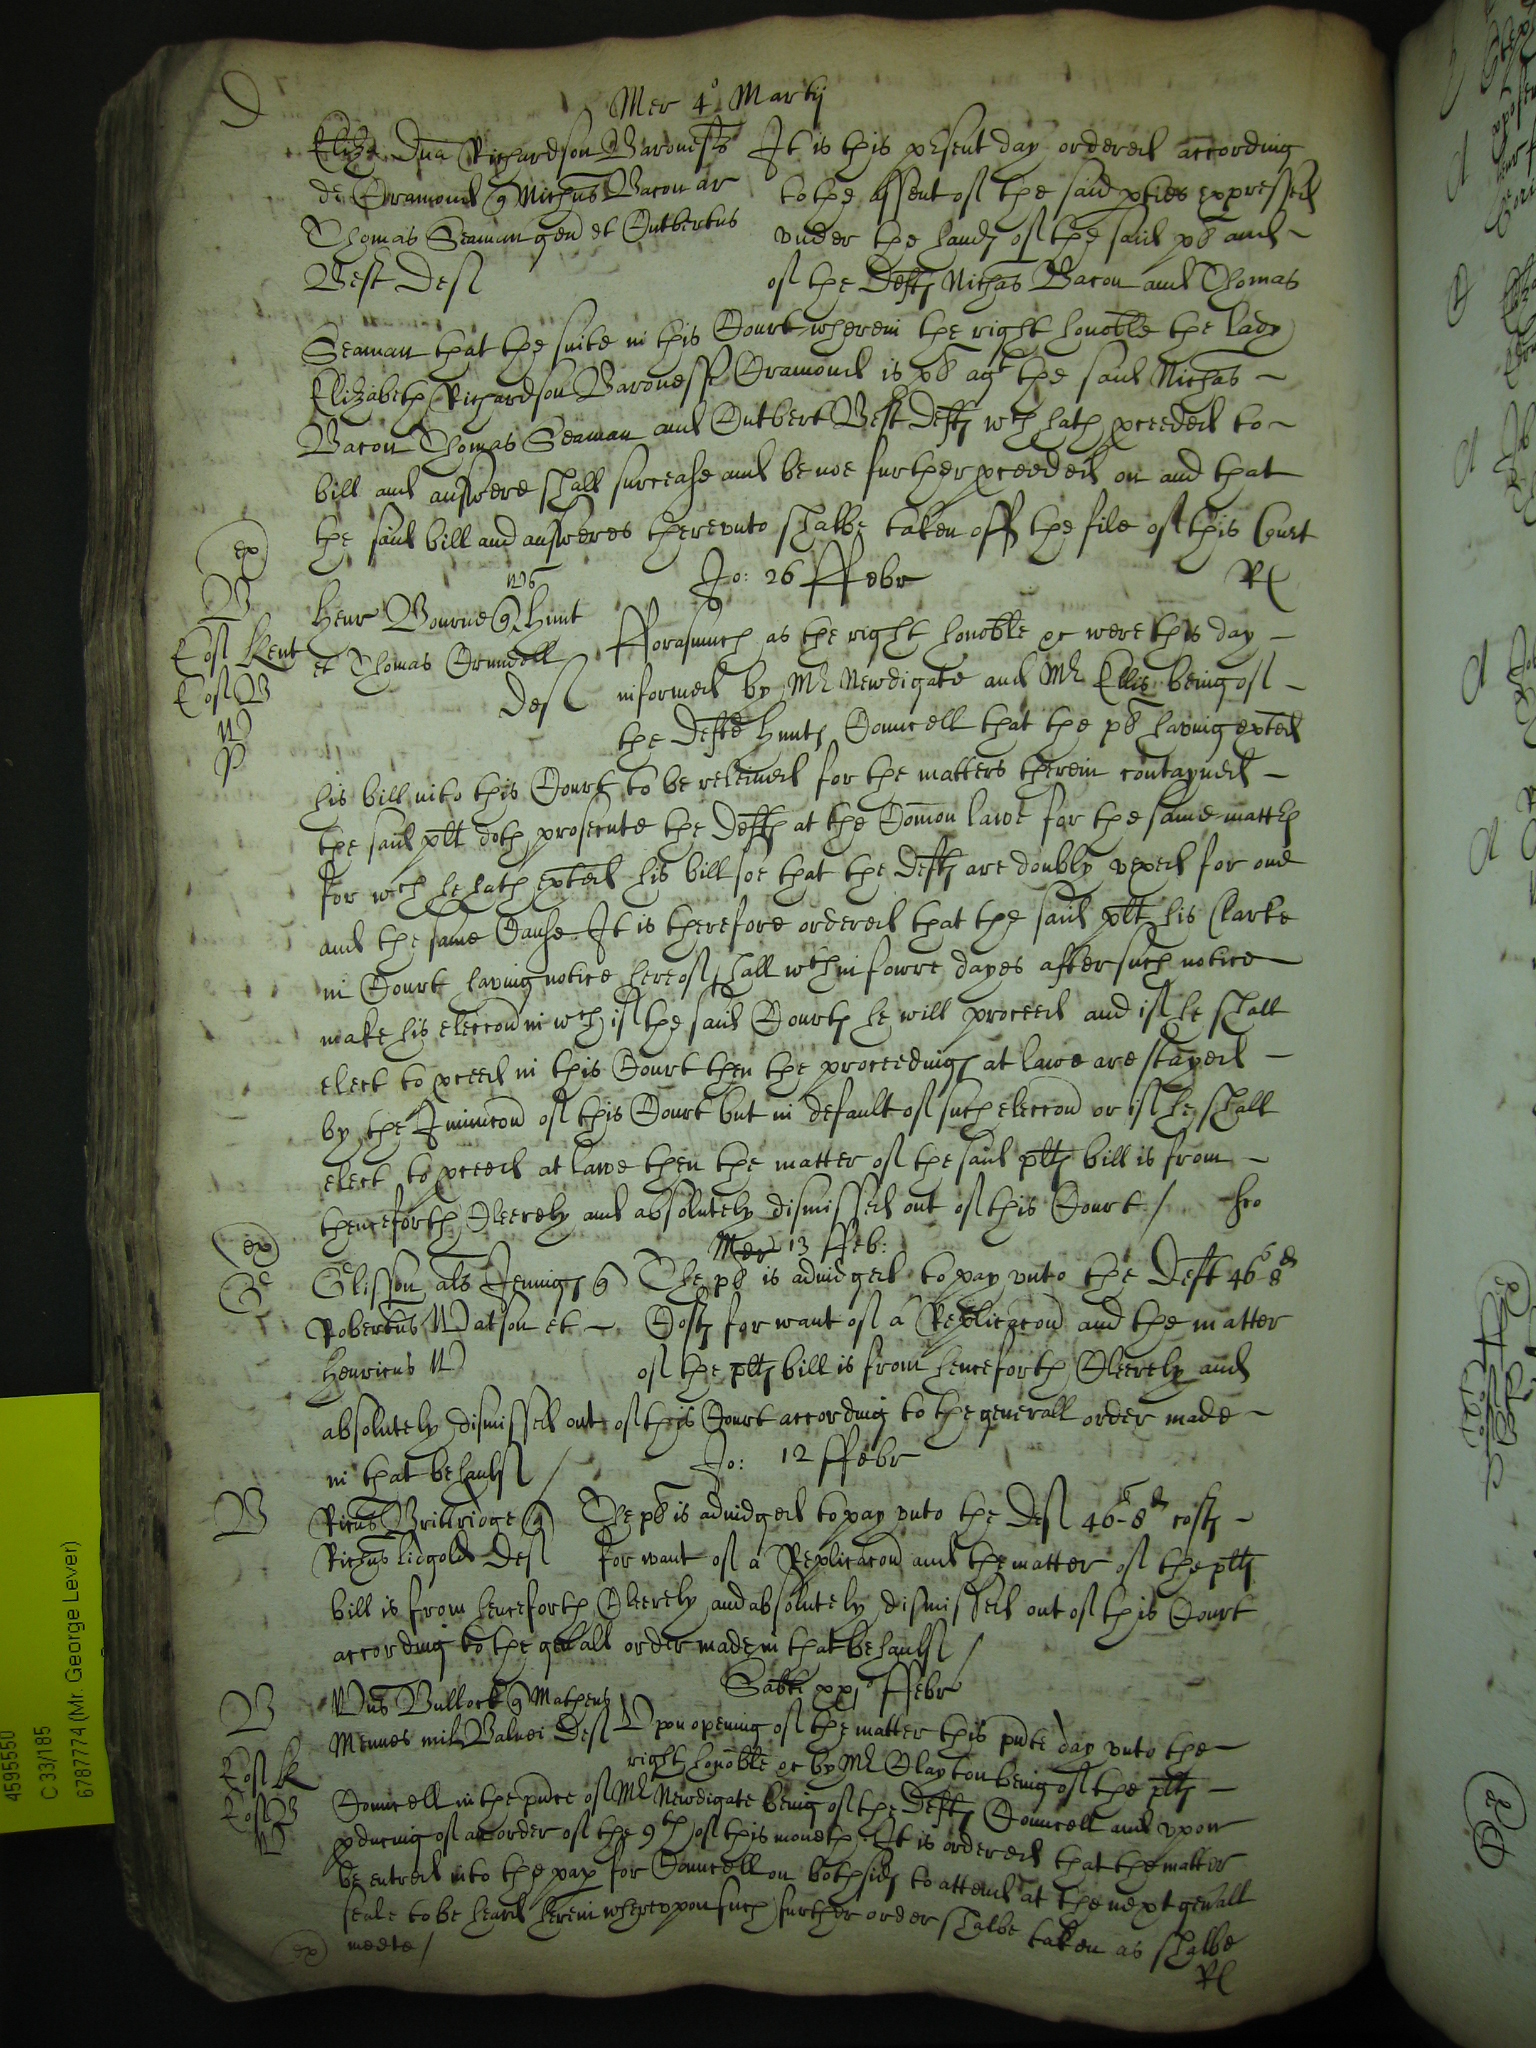 D
Mer 4° Martij
Eliza Dna Richardson Baroness It is this p̄sent day ordered according
de Cramond q Nichus Bacon ar to the assent of the said p̄ties expressed
Thomas Seaman gen et Cutbertus under the hands of the said pl and
Best Def of the Defts Nichas Bacon and Thomas
Seaman that the suite in this Court wherein the right honoble the lady
Elizabeth Richardson Baronesse Cramond is pl agt the said Nichas
Bacon Thomas Seaman and Cutbert Best Defts wch hath p̄ceeded to
bill and answere shall surcease and be noe further p̄ceeded on and that
the said bill and answeres thereunto shalbe taken off the file of this Court
ex
Jo: 26 ffebr Rl
B Henr Bourne q Hunt fforasmuch as the right honoble &c were this day
Cos Kent et Thomas Crundell informed by Mr Newdigate and Mr Ellis being of
Cos B Def the Defte Hunts Councell that the pl having exted
W
P
his bill into this Court to be releived for the matters therein contayned
the said plt doth prosecute the Defts at the Com̄on lawe for the same matters
for wch he hath exted his bill soe that the Defts are doubly vexed for one
and the same Cause It is therefore ordered that the said plt his Clarke
in Court having notice hereof shall wthin fowre dayes after such notice
make his eleccon in wch of the said Courts he will proceed and if he shall
elect to p̄ceed in this Court then the proceedings at lawe are stayed
by the Iniunccon of this Court but in default of such eleccon or if he shall
elect to p̄ceed at lawe then the matter of the said plts bill is from
thenceforth Cleerely and absolutely dismissed out of this Court /
ex
Mer 13 ffeb:
Glisson als Jennings q The pl is adiudged to pay unto the Deft 46s 8d
Robertus Watson et Costs for want of a Replicacon and the matter
Henricus W of the plts bill is from henceforth Cleerely and
absolutely dismissed out of this Court according to the generall order made
in that behaulf / Jo: 12 ffebr
B Ricus Brittridge q The pl is adiudged to pay unto the Def 46s-8d costs
Richus Lidgold Def for want of a Replicacon and the matter of the plts
bill is from henceforth Cleerely and absolutely dismissed out of this Court
according to the gen̄all order made in that behaulf /
Sabti xxj° ffebr
B Wus Bullock q Matheus Upon opening of the matter this p̄nte day unto the
Mennes mil Balnei Def right honoble &c by Mr Clayton being of the plts
Cos K Councell in the p̄nce of Mr Newdigate being of the Defts Councell and upon
Cos B p̄ducing of an order of the 9th of this moneth It is ordered that the matter
W be entred into the pap̄ for Councell on both sids to attend at the next gen̄all
seale to be heard herein whereupon such further order shalbe taken as shalbe
ex meete / Rl
4595550
C 33/185
6787774 (Mr. George Lever)